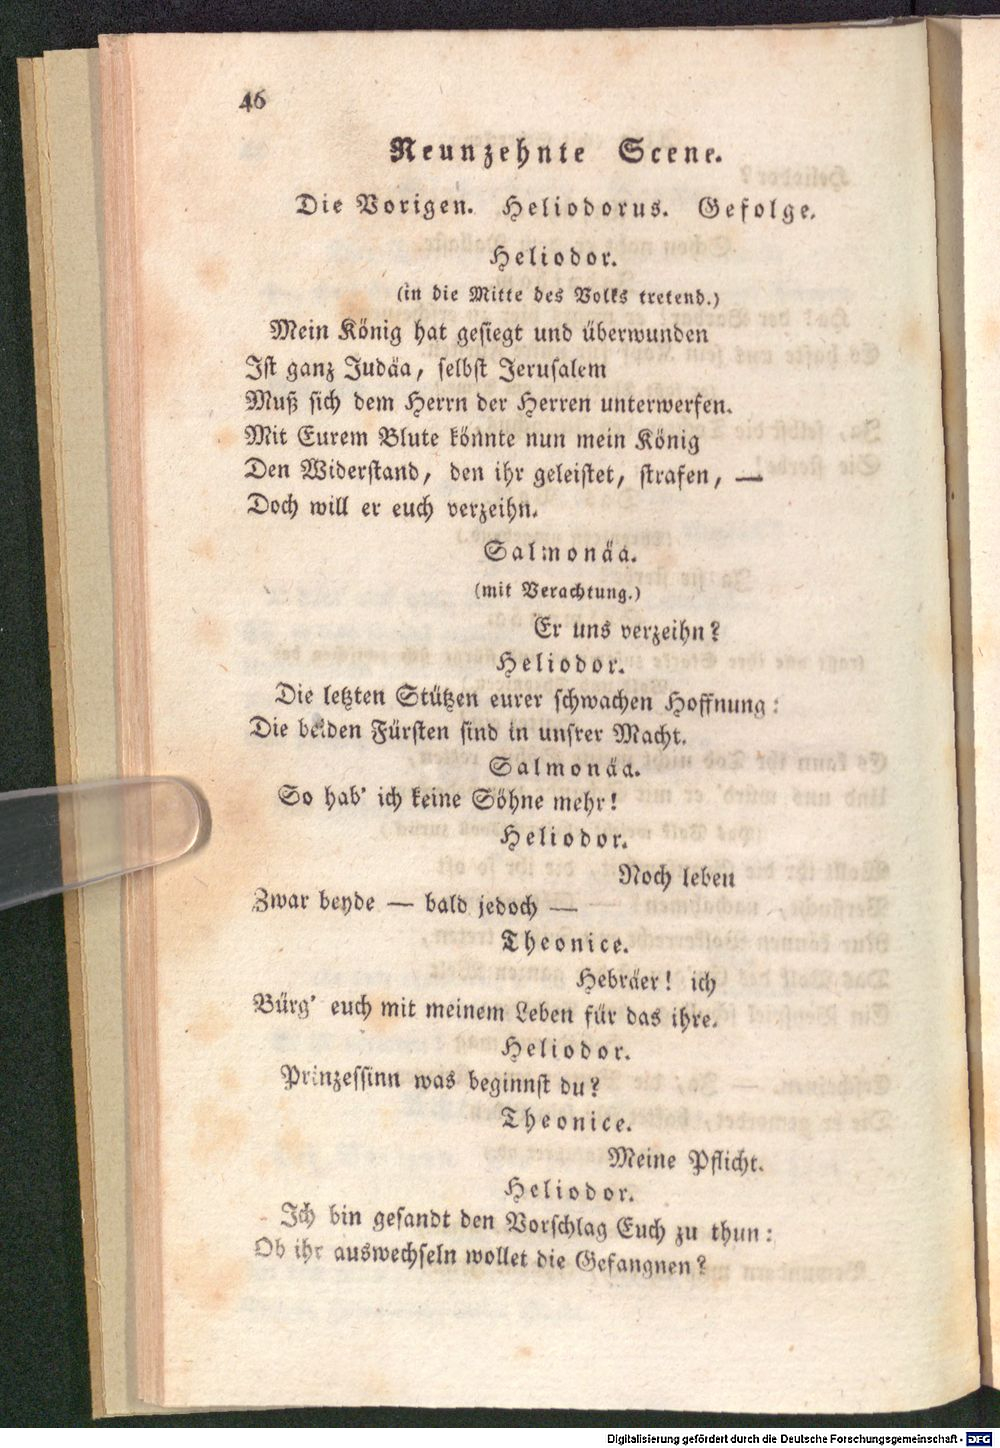 46
Neunzehnte Scene.
Die Vorigen. Heliodorus. Gefolge.
Heliodor.
(in die Mitte des Volks tretend.)
Mein König hat gesiegt und überwunden
Ist ganz Judäa, selbst Jerusalem
Muß sich dem Herrn der Herren unterwerfen.
Mit Eurem Blute könnte nun mein König
Den Widerstand, den ihr geleistet, strafen, —
Doch will er euch verzeihn.
Salmonäa.
(mit Verachtung.)
Er uns verzeihn?
Heliodor.
Die letzten Stützen eurer schwachen Hoffnung:
Die beiden Fürsten sind in unsrer Macht.
Salmonäa.
So hab' ich keine Söhne mehr!
Heliodor.
Noch leben
Zwar beyde — bald jedoch —
Theonice.
Hebräer! ich
Bürg' euch mit meinem Leben für das ihre.
Heliodor.
Prinzessinn was beginnst du?
Theonice.
Meine Pflicht.
Heliodor.
Ich bin gesandt den Vorschlag Euch zu thun:
Ob ihr auswechseln wollet die Gefangnen?
Digitalisierung gefördert durch die Deutsche Forschungsgemeinschaft - DFG